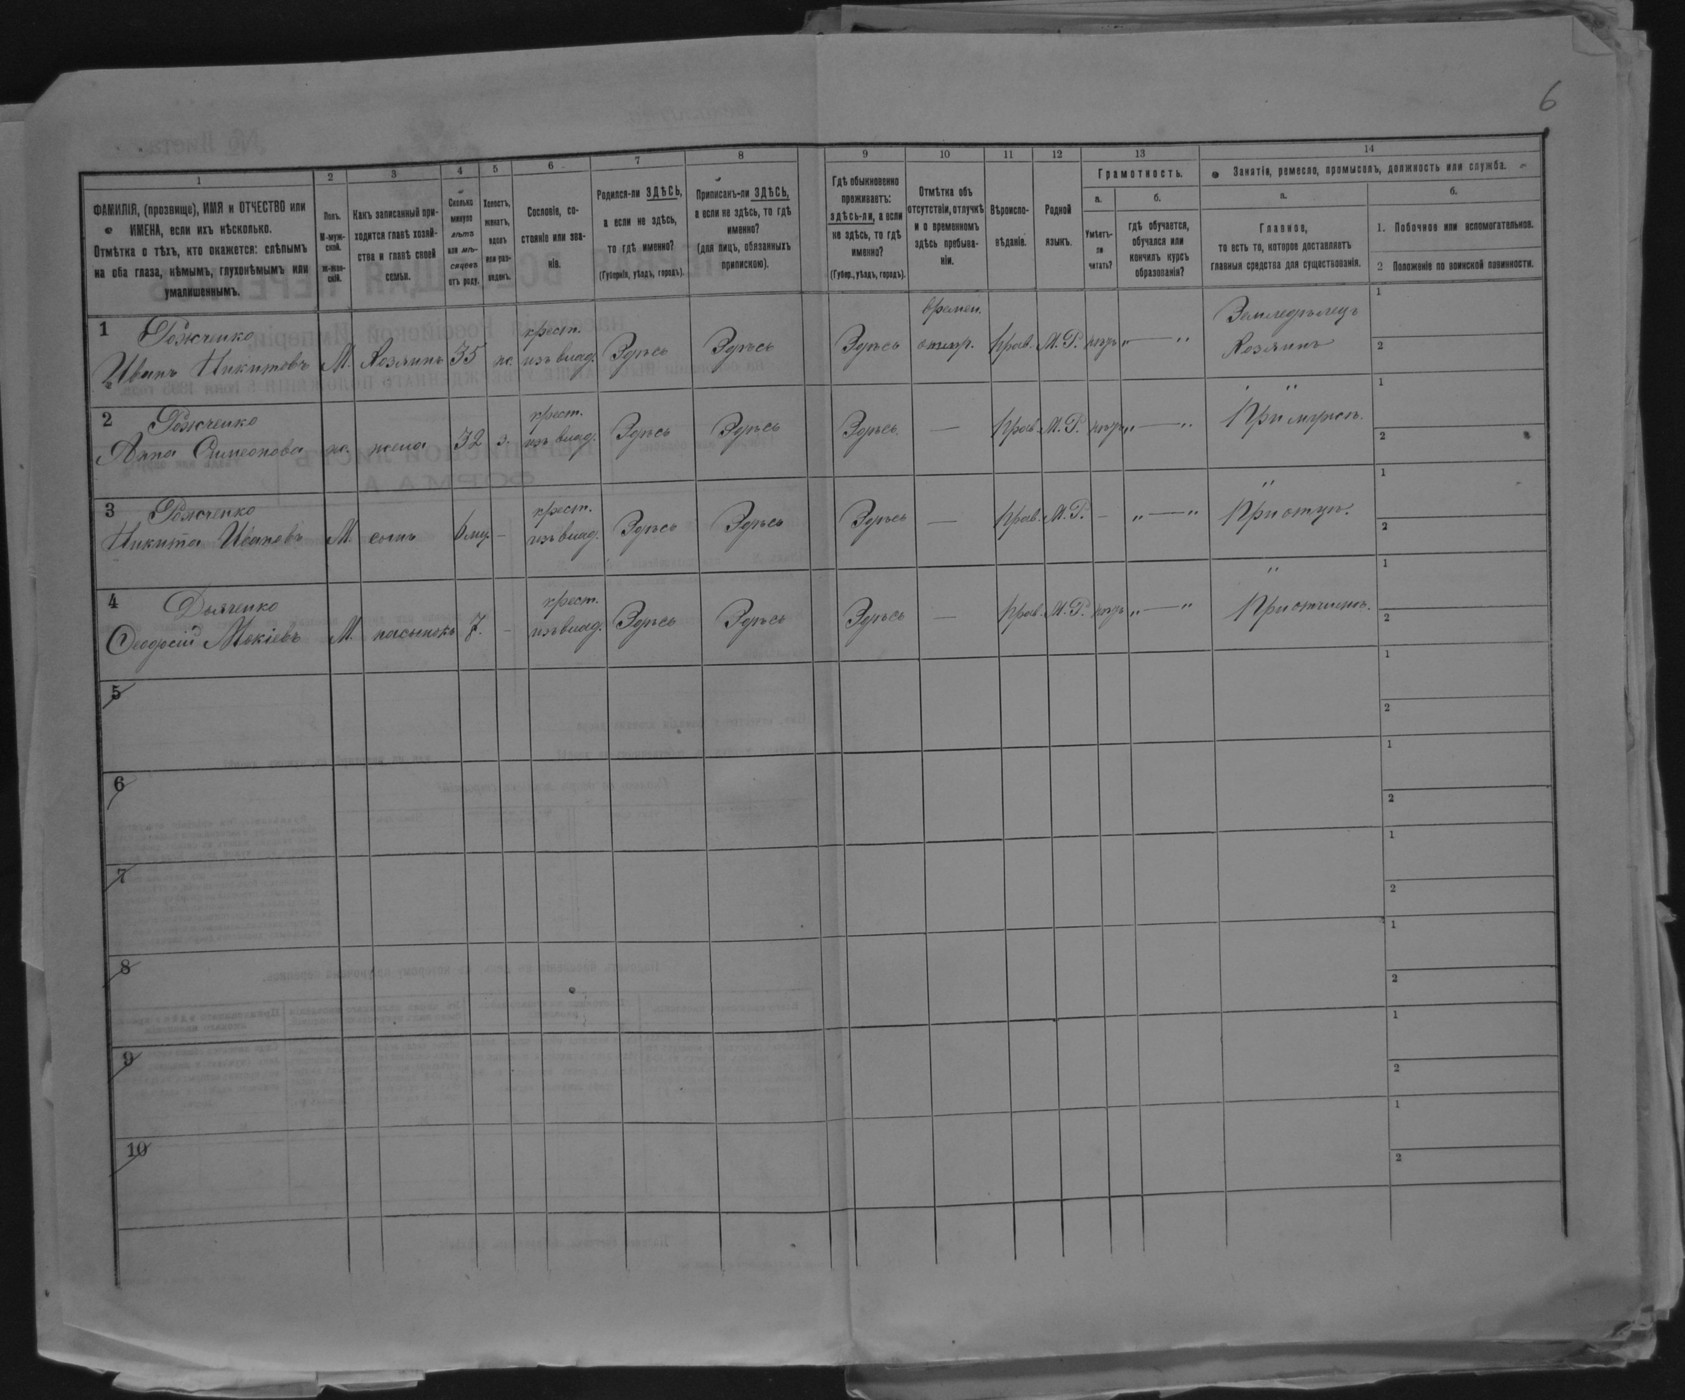 6
1
2
3
4
5
6
7
8
9
10
11
12
13
14
ФАМИЛІЯ, (прозвище), ИМЯ и ОТЧЕСТВО или
ИМЕНА, если ихъ нѣсколько.
Отмѣтка о тѣхъ, кто окажется: слѣпымъ
на оба глаза, нѣмымъ, глухонѣмымъ или
умалишеннымъ.
Полъ.
М-муж-
ской.
Ж-жен-
скій.
Какъ записанный при-
ходится главѣ хозяй-
ства и главѣ своей
семьи.
Сколько
минуло
лѣтъ
или мѣ-
сяцевъ
отъ роду.
Холостъ,
женатъ,
вдовъ
или раз-
веденъ.
Сословіе, со-
стояніе или зва-
ніе.
Родился-ли ЗДѢСЬ,
а если не здѣсь,
то гдѣ именно?
(Губернія, уѣздъ, городъ).
Приписанъ-ли ЗДѢСЬ,
а если не здѣсь, то гдѣ
именно?
(для лицъ, обязанныхъ
припискою).
Гдѣ обыкновенно
проживаетъ:
здѣсь-ли, а если
не здѣсь, то гдѣ
именно?
(Губер., уѣздъ, городъ).
Отмѣтка объ
отсутствіи, отлучкѣ
и о временномъ
здѣсь пребыва-
ніи.
Вѣроиспо-
вѣданіе.
Родной
языкъ.
Грамотность.
а.
Умѣетъ-
ли
читать?
б.
гдѣ обучается,
обучался или
кончилъ курсъ
образованія?
Занятіе, ремесло, промыселъ, должность или служба.
а.
Главное,
то есть то, которое доставляетъ
главныя средства для существованія.
б.
1. Побочное или вспомогательное.
2 Положеніе по воинской повинности.
1
Иванъ Никитовъ М. Хозяинъ 35 ж. крест. изъ влад. Здѣсь Здѣсь Здѣсь времен. отлуч. Прав. М. Р. нѣтъ „ — „ Земледѣлецъ Хозяинъ
1
2
2
Анна Симеонова ж. жена 32 з. крест. изъ влад. Здѣсь Здѣсь Здѣсь — Прав. М. Р. нѣтъ „ — „ „ При мужѣ.
1
2
3
Никита Ивановъ М сынъ крест. изъ влад. Здѣсь Здѣсь Здѣсь — Прав. М. Р. — „ — „ „
1
2
4 Дьяченко
Ѳеодосій М. пасынокъ 7. — крест. изъ влад. Здѣсь Здѣсь Здѣсь — Прав. М. Р. нѣтъ „ — „ „
1
2
5
1
2
6
1
2
7
1
2
8
1
2
9
1
2
10
1
2